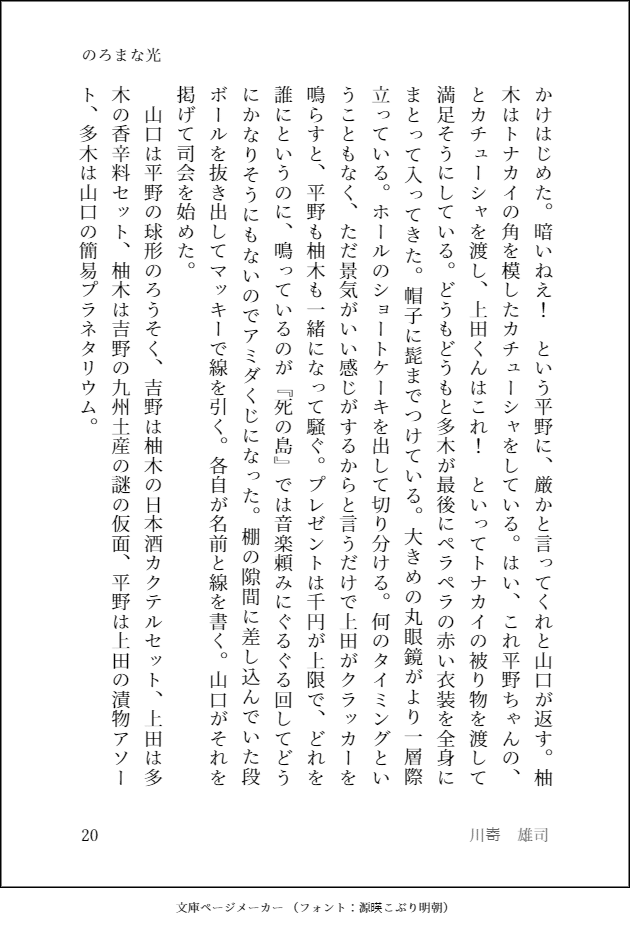 のろまな光
かけはじめた。暗いねえ！　という平野に、厳かと言ってくれと山口が返す。柚
木はトナカイの角を模したカチューシャをしている。はい、これ平野ちゃんの、
とカチューシャを渡し、上田くんはこれ！　といってトナカイの被り物を渡して
満足そうにしている。どうもどうもと多木が最後にペラペラの赤い衣装を全身に
まとって入ってきた。帽子に髭までつけている。大きめの丸眼鏡がより一層際
立っている。ホールのショートケーキを出して切り分ける。何のタイミングとい
うこともなく、ただ景気がいい感じがするからと言うだけで上田がクラッカーを
鳴らすと、平野も柚木も一緒になって騒ぐ。プレゼントは千円が上限で、どれを
誰にというのに、鳴っているのが『死の島』では音楽頼みにぐるぐる回してどう
にかなりそうにもないのでアミダくじになった。棚の隙間に差し込んでいた段
ボールを抜き出してマッキーで線を引く。各自が名前と線を書く。山口がそれを
掲げて司会を始めた。
　山口は平野の球形のろうそく、吉野は柚木の日本酒カクテルセット、上田は多
木の香辛料セット、柚木は吉野の九州土産の謎の仮面、平野は上田の漬物アソー
ト、多木は山口の簡易プラネタリウム。
20
川嵜　雄司
文庫ページメーカー（フォント：源暎こぶり明朝）